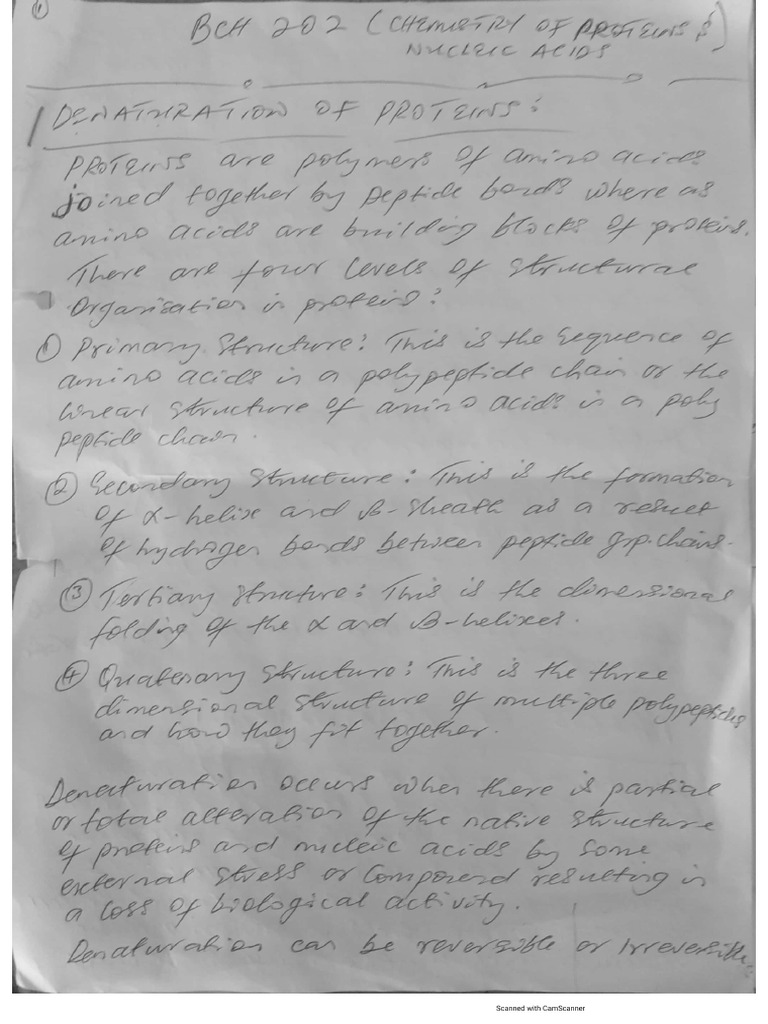 1
BCH 202 (CHEMISTRY OF PROTEINS &
NUCLEIC ACIDS)
DENATURATION OF PROTEINS:
PROTEINS are polymers of amino acids
joined together by peptide bonds where as
amino acids are building blocks of proteins.
There are four levels of structural
Organisation in proteins:
① Primary Structure: This is the sequence of
amino acids in a polypeptide chain or the
linear structure of amino acids in a poly
peptide chain.
② Secondary Structure: This is the formation
of α-helix and β-sheath as a result
of hydrogen bonds between peptide grp. chains.
③ Tertiary structure: This is the dimensional
folding of the α and β-helixes.
④ Quaternary Structure: This is the three
dimensional structure of multiple polypeptides
and how they fit together.
Denaturation occurs when there is partial
or total alteration of the native structure
of proteins and nucleic acids by some
external stress or compound resulting in
a loss of biological activity.
Denaturation can be reversible or irreversible
Scanned with CamScanner